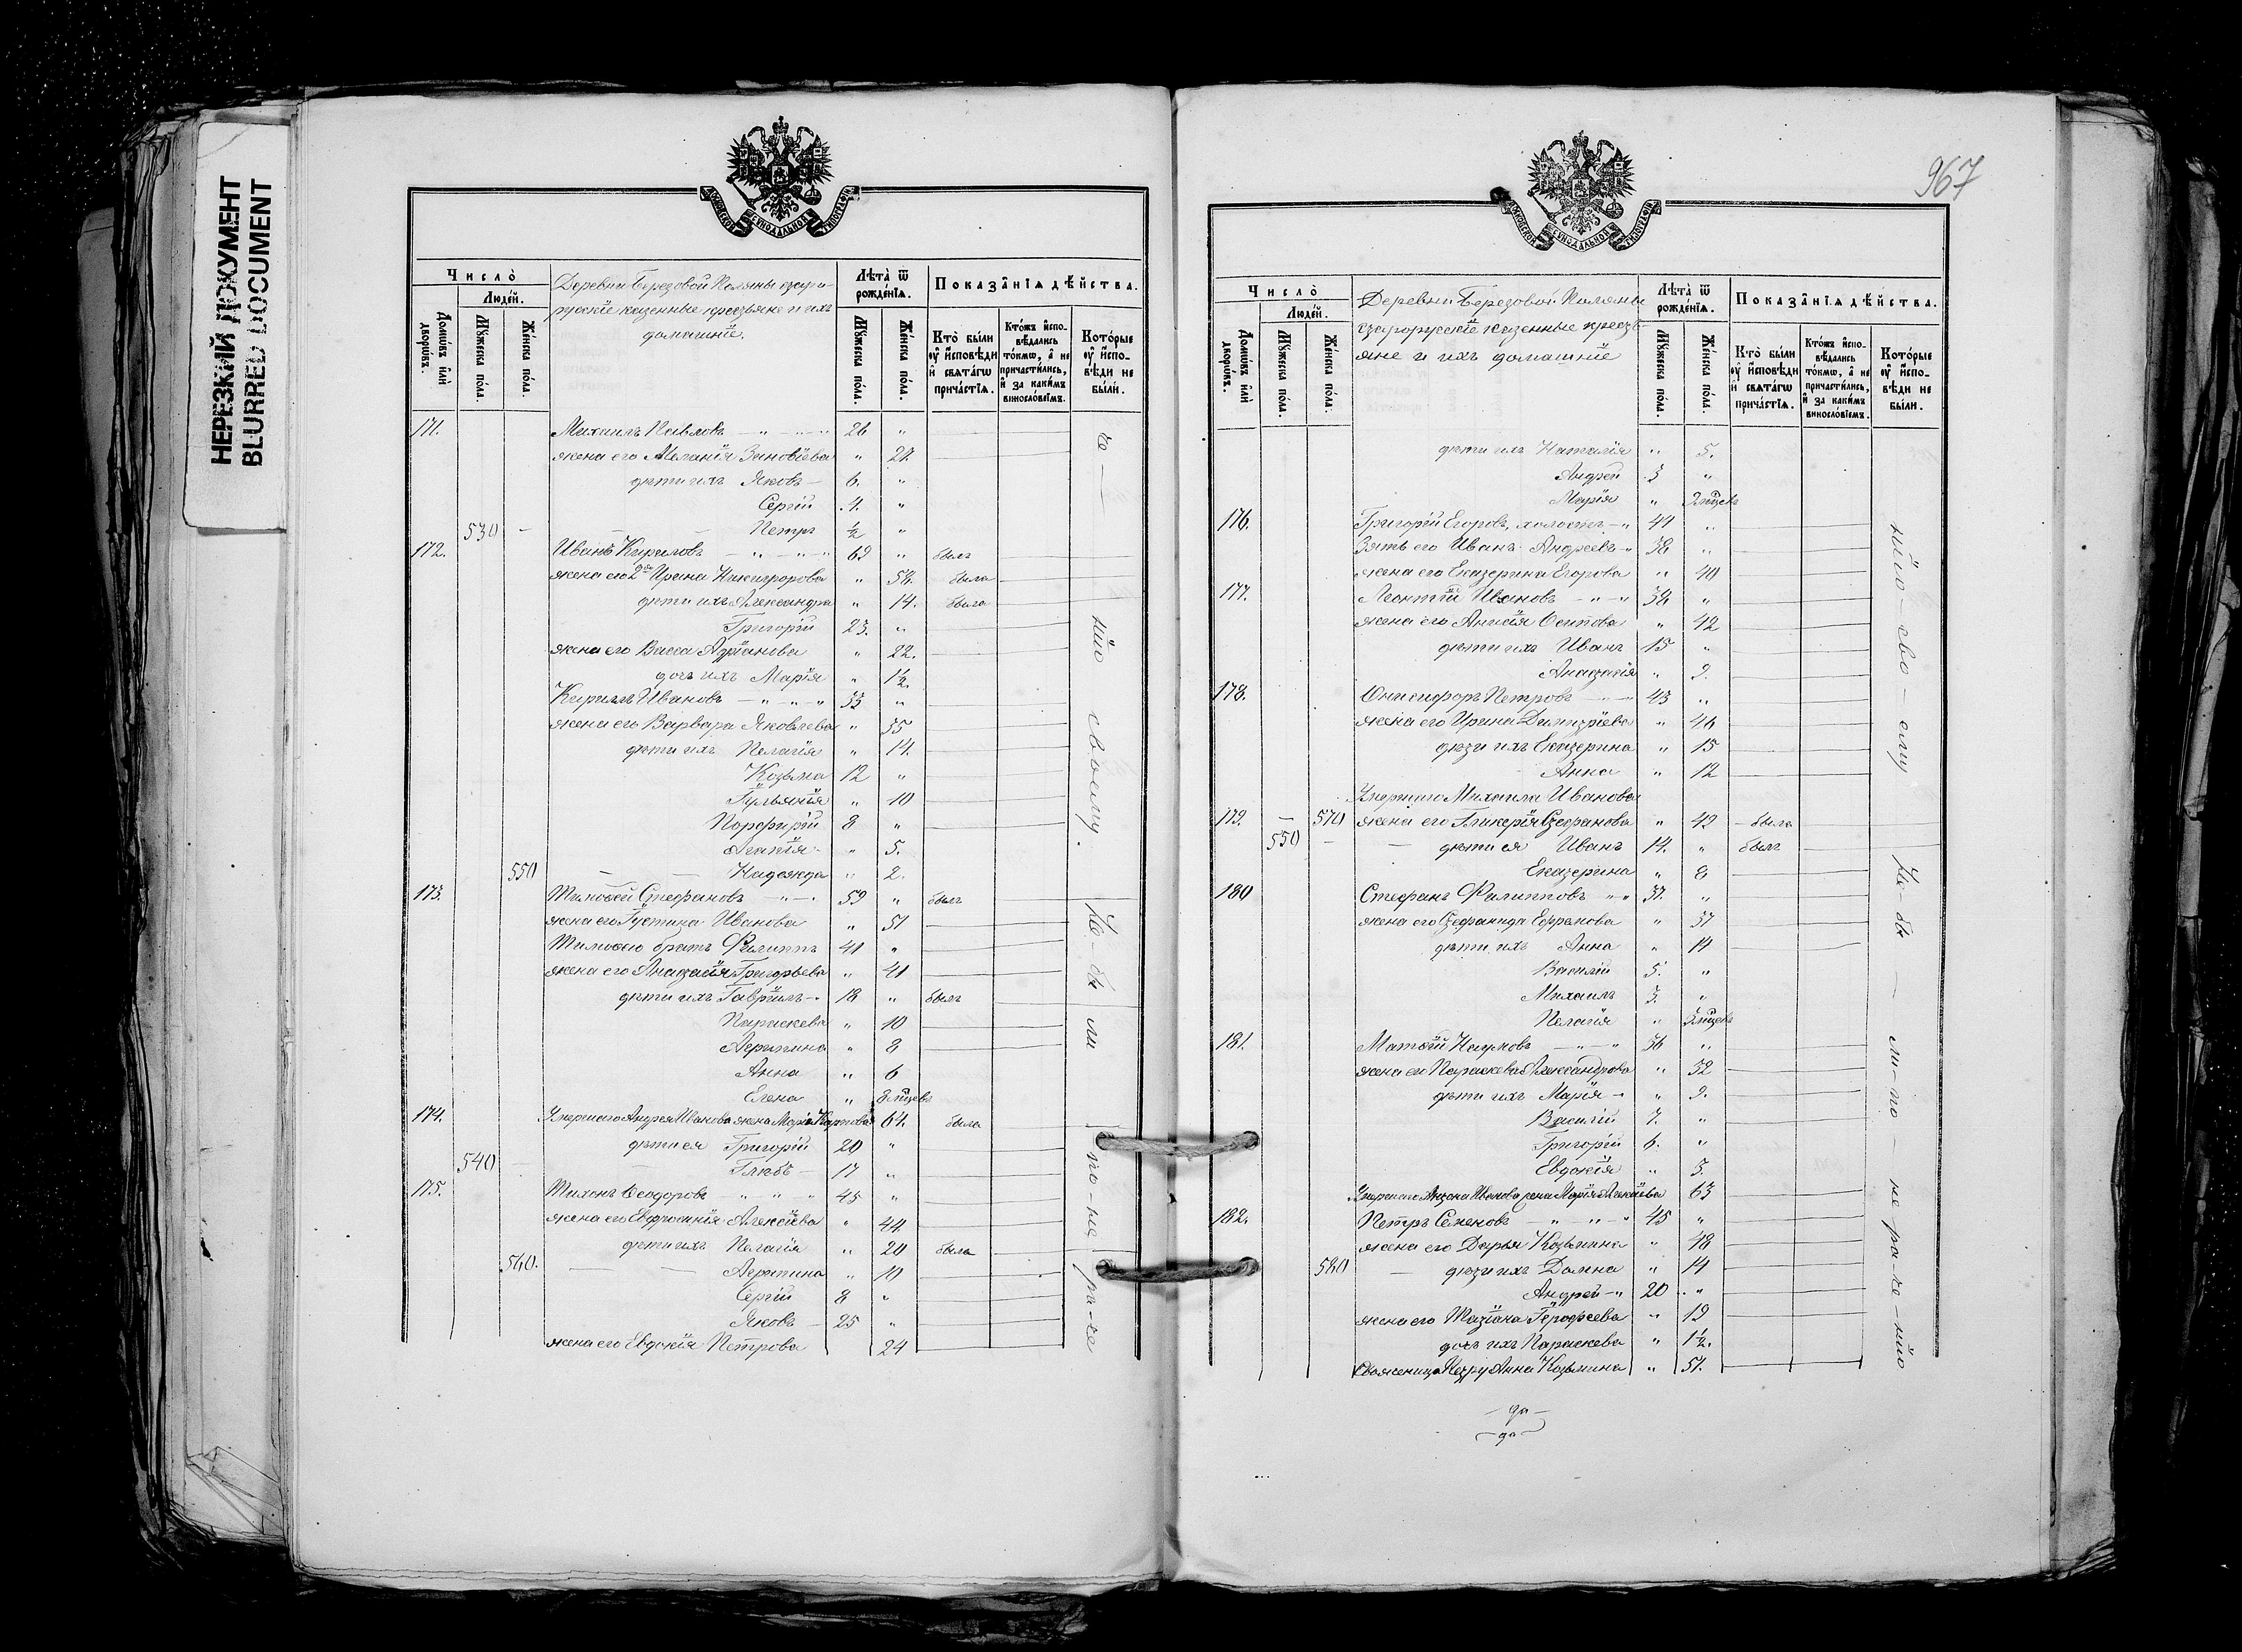 НЕРЕЗКИЙ ДОКУМЕНТ
BLURRED DOCUMENT
МОСКОВСКОЙ СѴНОДАЛЬНОЙ ТИПОГРАФІИ
Число̀
Людей.
Домѡвъ илѝ дворѡвъ.
Мꙋжеска по́ла.
Же́нска по́ла.
Деревни Березовой Поляны стару-
рускіе казенные крестьяне и ихъ
домашніе.
Лѣта̀ ѿ рожде́нїѧ.
Мꙋжеска по́ла.
Же́нска по́ла.
Показа̑нїѧ дѣ́йства.
Кто̀ бы́ли ᲂу҆ и҆сповѣди и҆ свѧта́гѡ прича́стїѧ.
Кто́жъ и҆сповѣдались то́кмѡ, а҆ не причасти́лись, и҆ за каки́мъ винослóвїемъ.
Кото́рые ᲂу҆ и҆сповѣди не бы́ли.
171. Михаилъ Павловъ — „ — „ — „ 26 „
жена его Меланія Зиновіева „ 27.
дѣти ихъ Яковъ — 6. „
Сергій 4. „
530 — Петръ ½ „
172. Иванъ Кириловъ — „ — „ — „ 62 „ былъ
жена его 2я Ирина Никифорова „ 58. была
дѣти ихъ Александра „ 14. была
Григорій 23. „
жена его Васса Адріанова „ 22.
дочь ихъ Марія „ 1½.
Кирилъ Ивановъ — „ — „ — „ 33 „
жена его Варвара Яковлева „ 35
дѣти ихъ Пелагія „ 14.
Козьма 12 „
„ 10
Порфирій 8 „
„ 5.
550 — — Надежда „ 2.
173. Тимоѳей Стефановъ — „ — 59 „ былъ
жена его Іустина Иванова „ 51
Тимоѳею братъ Филиппъ 41 „
жена его Анастасія Григорьева „ 41
дѣти ихъ Гавріилъ — 18 „ былъ
Параскева „ 10
Агрипина „ 8
Анна „ 6
Елена „
174. Умершаго Андрея Иванова жена Марія Карпова 61. была
дѣти ея Григорій 20 „
540 — Глѣбъ — 17 „
175. Тихонъ Ѳеодоровъ — „ „ „ 45 „
жена его Евфросинія Алексіева „ 44
дѣти ихъ Пелагія „ 20 была
560. — — Агрипина „ 10
Сергій 8 „
Яковъ — 25 „
жена его Евдокія Петрова 24
967
МОСКОВСКОЙ СѴНОДАЛЬНОЙ ТИПОГРАФІИ
Число̀
Людей.
Домѡвъ илѝ дворѡвъ.
Мꙋжеска по́ла.
Же́нска по́ла.
Деревни Березовой Поляны
старорускіе казенные кресть-
яне и ихъ домашніе
Лѣта̀ ѿ рожде́нїѧ.
Мꙋжеска по́ла.
Же́нска по́ла.
Показа̑нїѧ дѣ́йства.
Кто̀ бы́ли ᲂу҆ и҆сповѣди и҆ свѧта́гѡ прича́стїѧ.
Кто́жъ и҆сповѣдались то́кмѡ, а҆ не причасти́лись, и҆ за каки́мъ винослóвїемъ.
Кото́рые ᲂу҆ и҆сповѣди не бы́ли.
дѣти ихъ Наталія „ 5.
Андрей 3 „
Марія „
176. Григорій Егоровъ, холостъ — „ 41 „
Зять его Иванъ Андреевъ „ 38 „
жена его Екатерина Егорова „ 40
177. Леонтій Ивановъ — „ — „ 38 „
жена его Анисія Осипова „ 42
дѣти ихъ Иванъ 15 „
Анастасія „ 9.
178. Онисифоръ Петровъ „ 43 „
жена его Ирина Димитріева „ 46
дѣти ихъ Екатерина „ 15
Анна „ 12
Умершаго Михаила Иванова
179. — 570 жена его Гликерія Стефанова „ 42 — была
550 — — дѣти ея Иванъ 14. „ былъ
Екатерина „ 8
180 Стефанъ Филипповъ „ „ 37. „
жена его Стефанида Ефремова „ 37
дѣти ихъ Анна „ 11
Василій 5. „
Михаилъ 3. „
Пелагія „
181. Матѳій Наумовъ — „ — „ 36 „
жена его Параскева Александрова „ 32
дѣти ихъ Марія — „ 9.
Василій 7. „
Григорій 6. „
Евдокія „ 3.
Умершаго Иванова жена Марія Алексіева 63
182. Петръ Семеновъ — „ — „ — „ 45 „
жена его Дарья Козьмина „ 48
580 — дѣти ихъ Домна „ 14
Андрей — „ 20 „
жена его Татіана Іерофеева „ 19
дочь ихъ Параскева „ 1½.
Свояченица Петру Анна Козьмина „ 51.